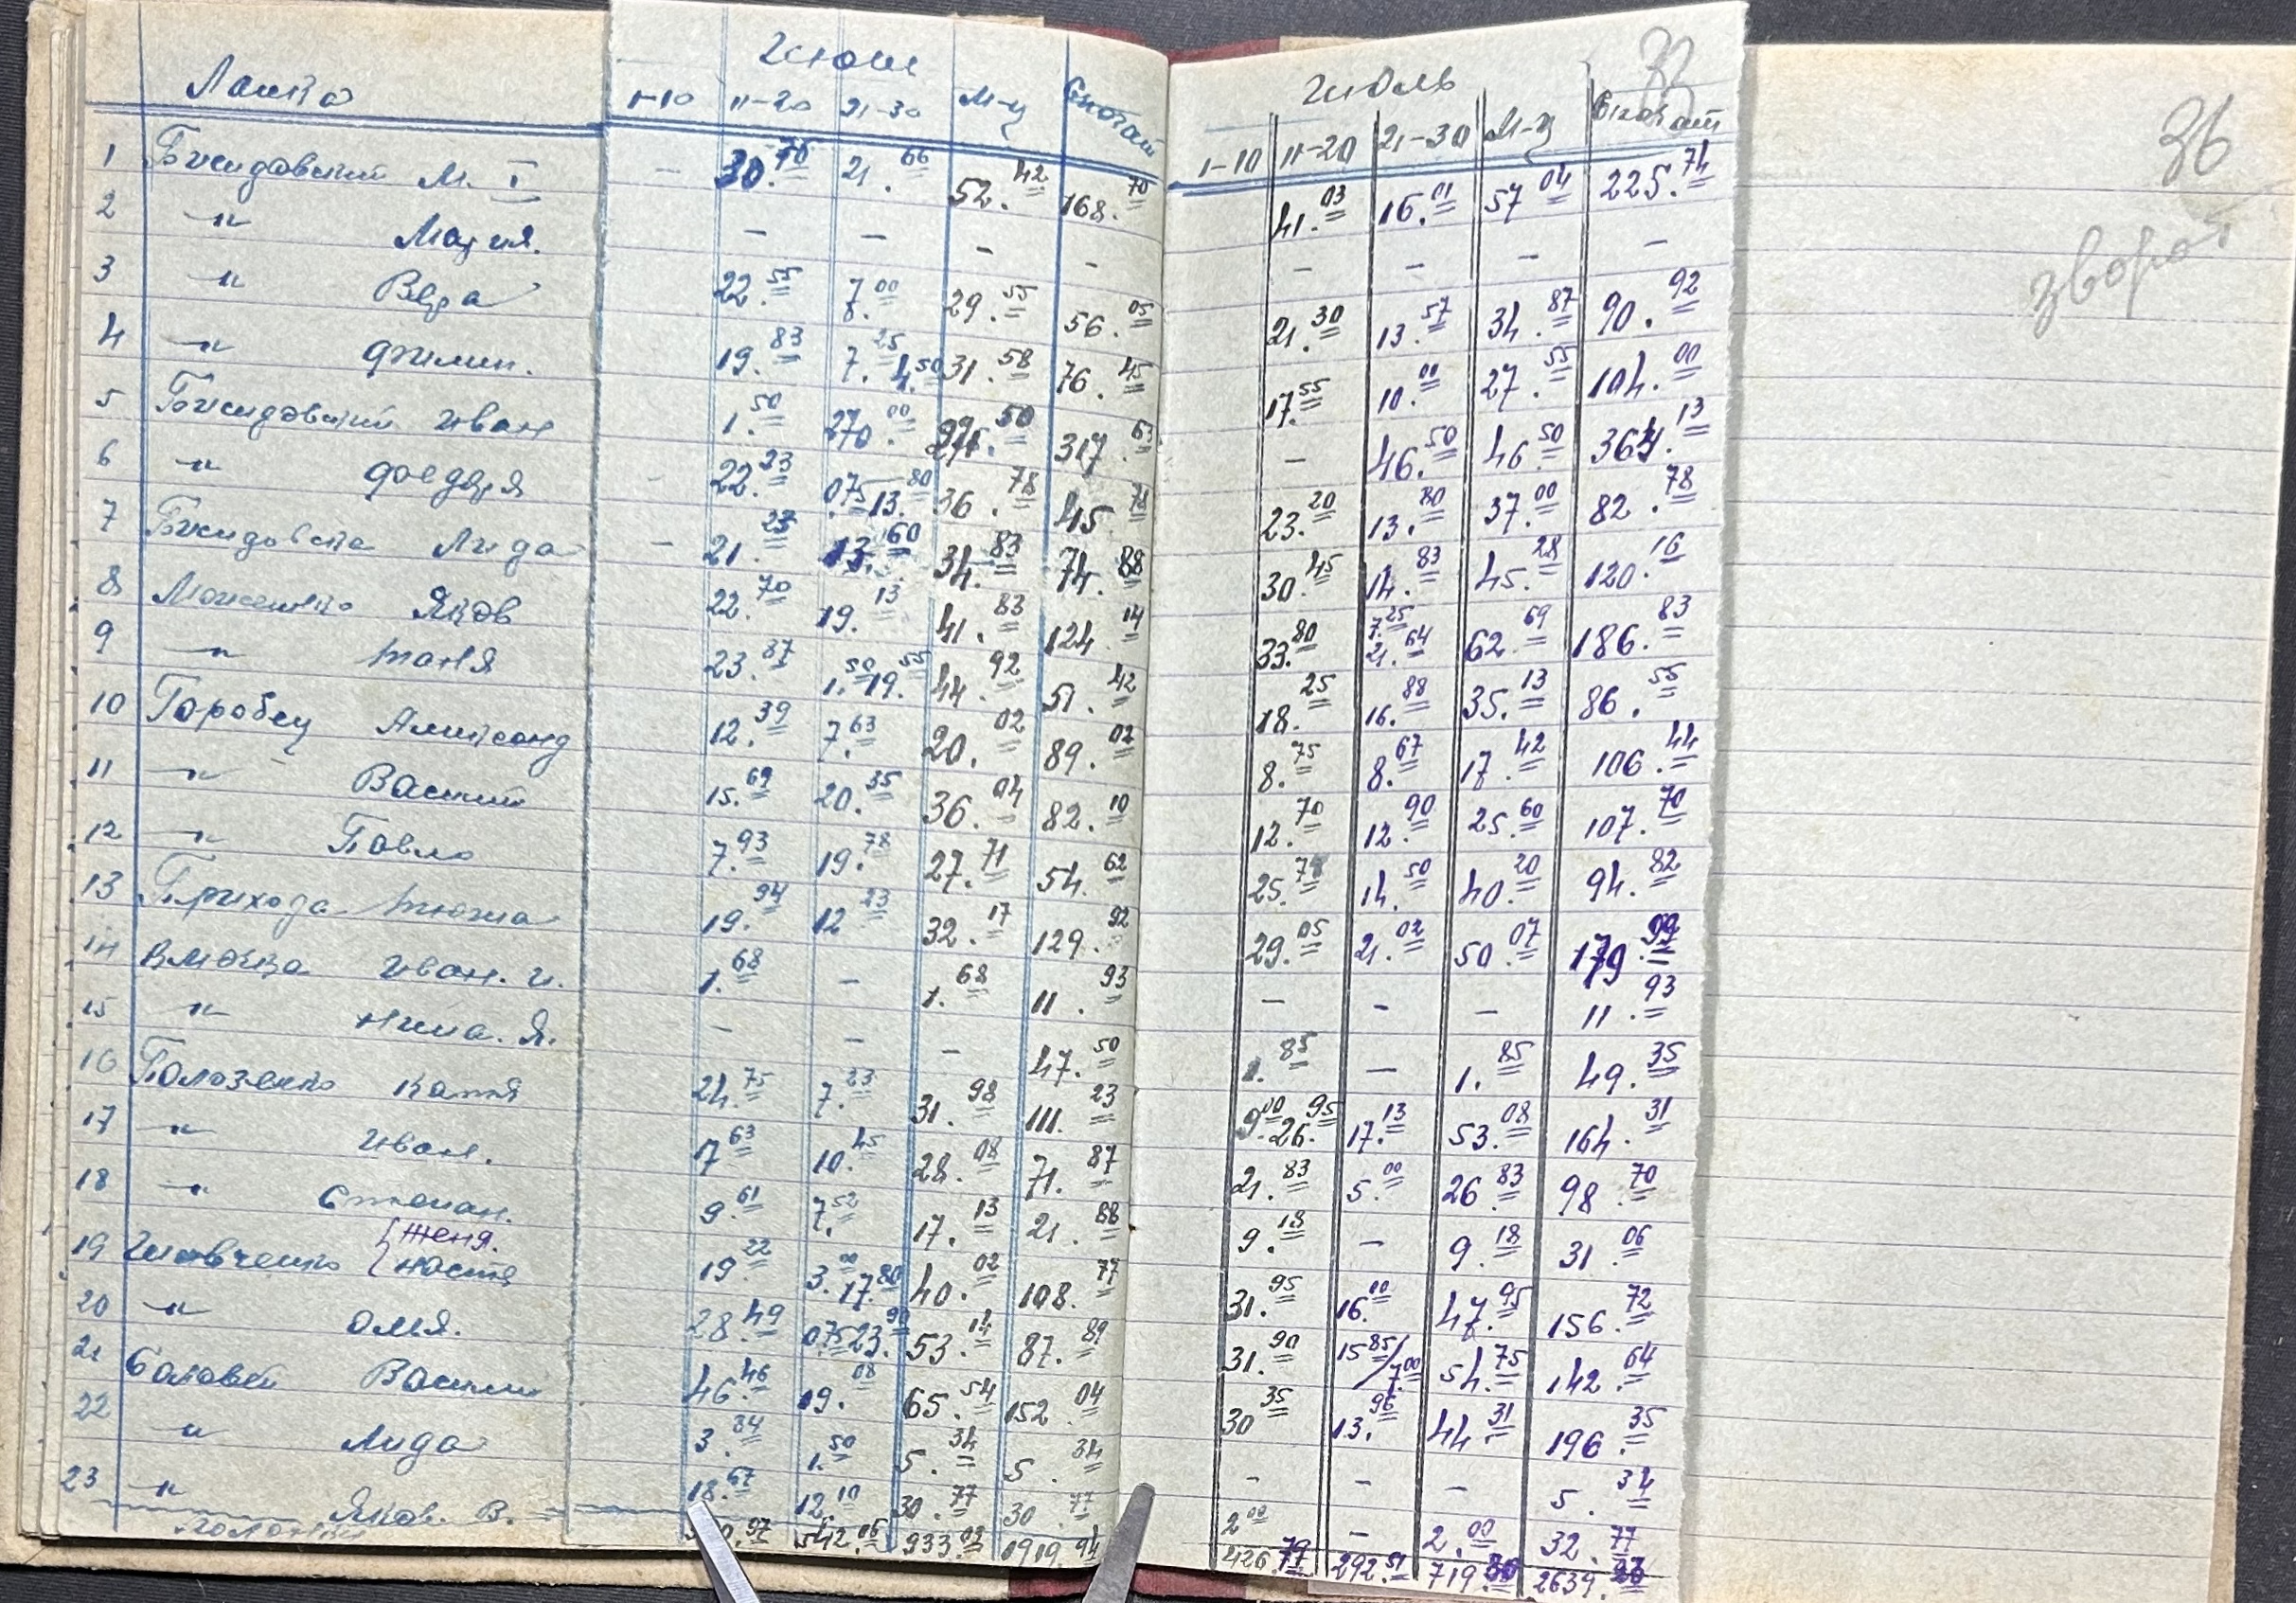 33
36
зворот
Ланка Июнь Июль
1-10 11-20 21-30 М-ц Спочат 1-10 11-20 21-30 М-ц Спочат
1 М. I - 30.76 21.66 52.42 168.70 41.03 16.01 57.04 225.74
2 -"- Мария. - - - - - - - -
3 -"- Вера 22.55 7.00 29.55 56.05 21.30 13.57 34.87 90.92
4 -"- Филип. 19.83 7.25 4.50 31.58 76.45 17.55 10.00 27.55 104.00
5 Иван 1.50 270.00 50 317.63 - 46.50 46.50 364.13
6 -"- 22.23 0.75 13.80 36.78 45.78 23.20 13.80 37.00 82.78
7 Лида - 21.23 13.60 34.83 74.88 30.45 14.83 45.28 120.16
8 Яков 22.70 19.13 41.83 124.14 33.80 7.25 21.64 62.69 186.83
9 -"- Таня 23.87 1.50 19.55 44.92 51.42 18.25 16.88 35.13 86.55
10 Горобец Александ 12.39 7.63 20.02 89.02 8.75 8.67 17.42 106.44
11 -"- Василий 15.69 20.35 36.04 82.10 12.70 12.90 25.60 107.70
12 -"- Павло 7.93 19.78 27.71 54.62 25.70 14.50 40.20 94.82
13 Прихода 19.94 12.23 32.17 129.92 29.05 21.02 50.07 179.99
14 Иван. И. 1.68 - 1.68 11.93 - - - 11.93
15 -"- Нина. Я. - - - 47.50 1.85 - 1.85 49.35
16 Полозенко Катя 24.75 7.23 31.98 111.23 9.00 26.95 17.13 53.08 164.31
17 -"- Иван. 17.63 10.45 28.08 71.87 21.83 5.00 26.83 98.70
18 -"- Степан. 9.61 7.52 17.13 21.88 9.18 - 9.18 31.06
19 Шевченко {Женя. Настя 19.22 3.00 17.80 40.02 108.77 31.95 16.00 47.95 156.72
20 -"- Оля. 28.49 0.75 23.90 53.14 87.89 31.90 15.85/7.00 54.75 142.64
21 Соловей Василий 46.46 19.08 65.54 152.04 30.35 13.96 44.31 196.35
22 -"- Лида 3.84 1.50 5.34 5.34 - - - 5.34
23 -"- Яков. В. 18.67 12.10 30.77 30.77 2.00 - 2.00 32.77
542.06 933.03 1919.94 426 292.51 719 2639